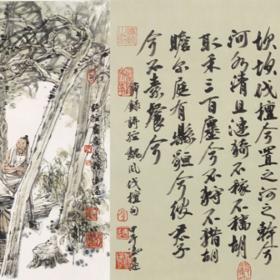 坎坎伐檀兮置之河之干兮
河水清且漣猗不稼不穡胡
取禾三百廛兮不狩不猎胡
瞻尔庭有縣貆兮彼君子
兮不素餐兮
節錄詩經魏風伐檀句